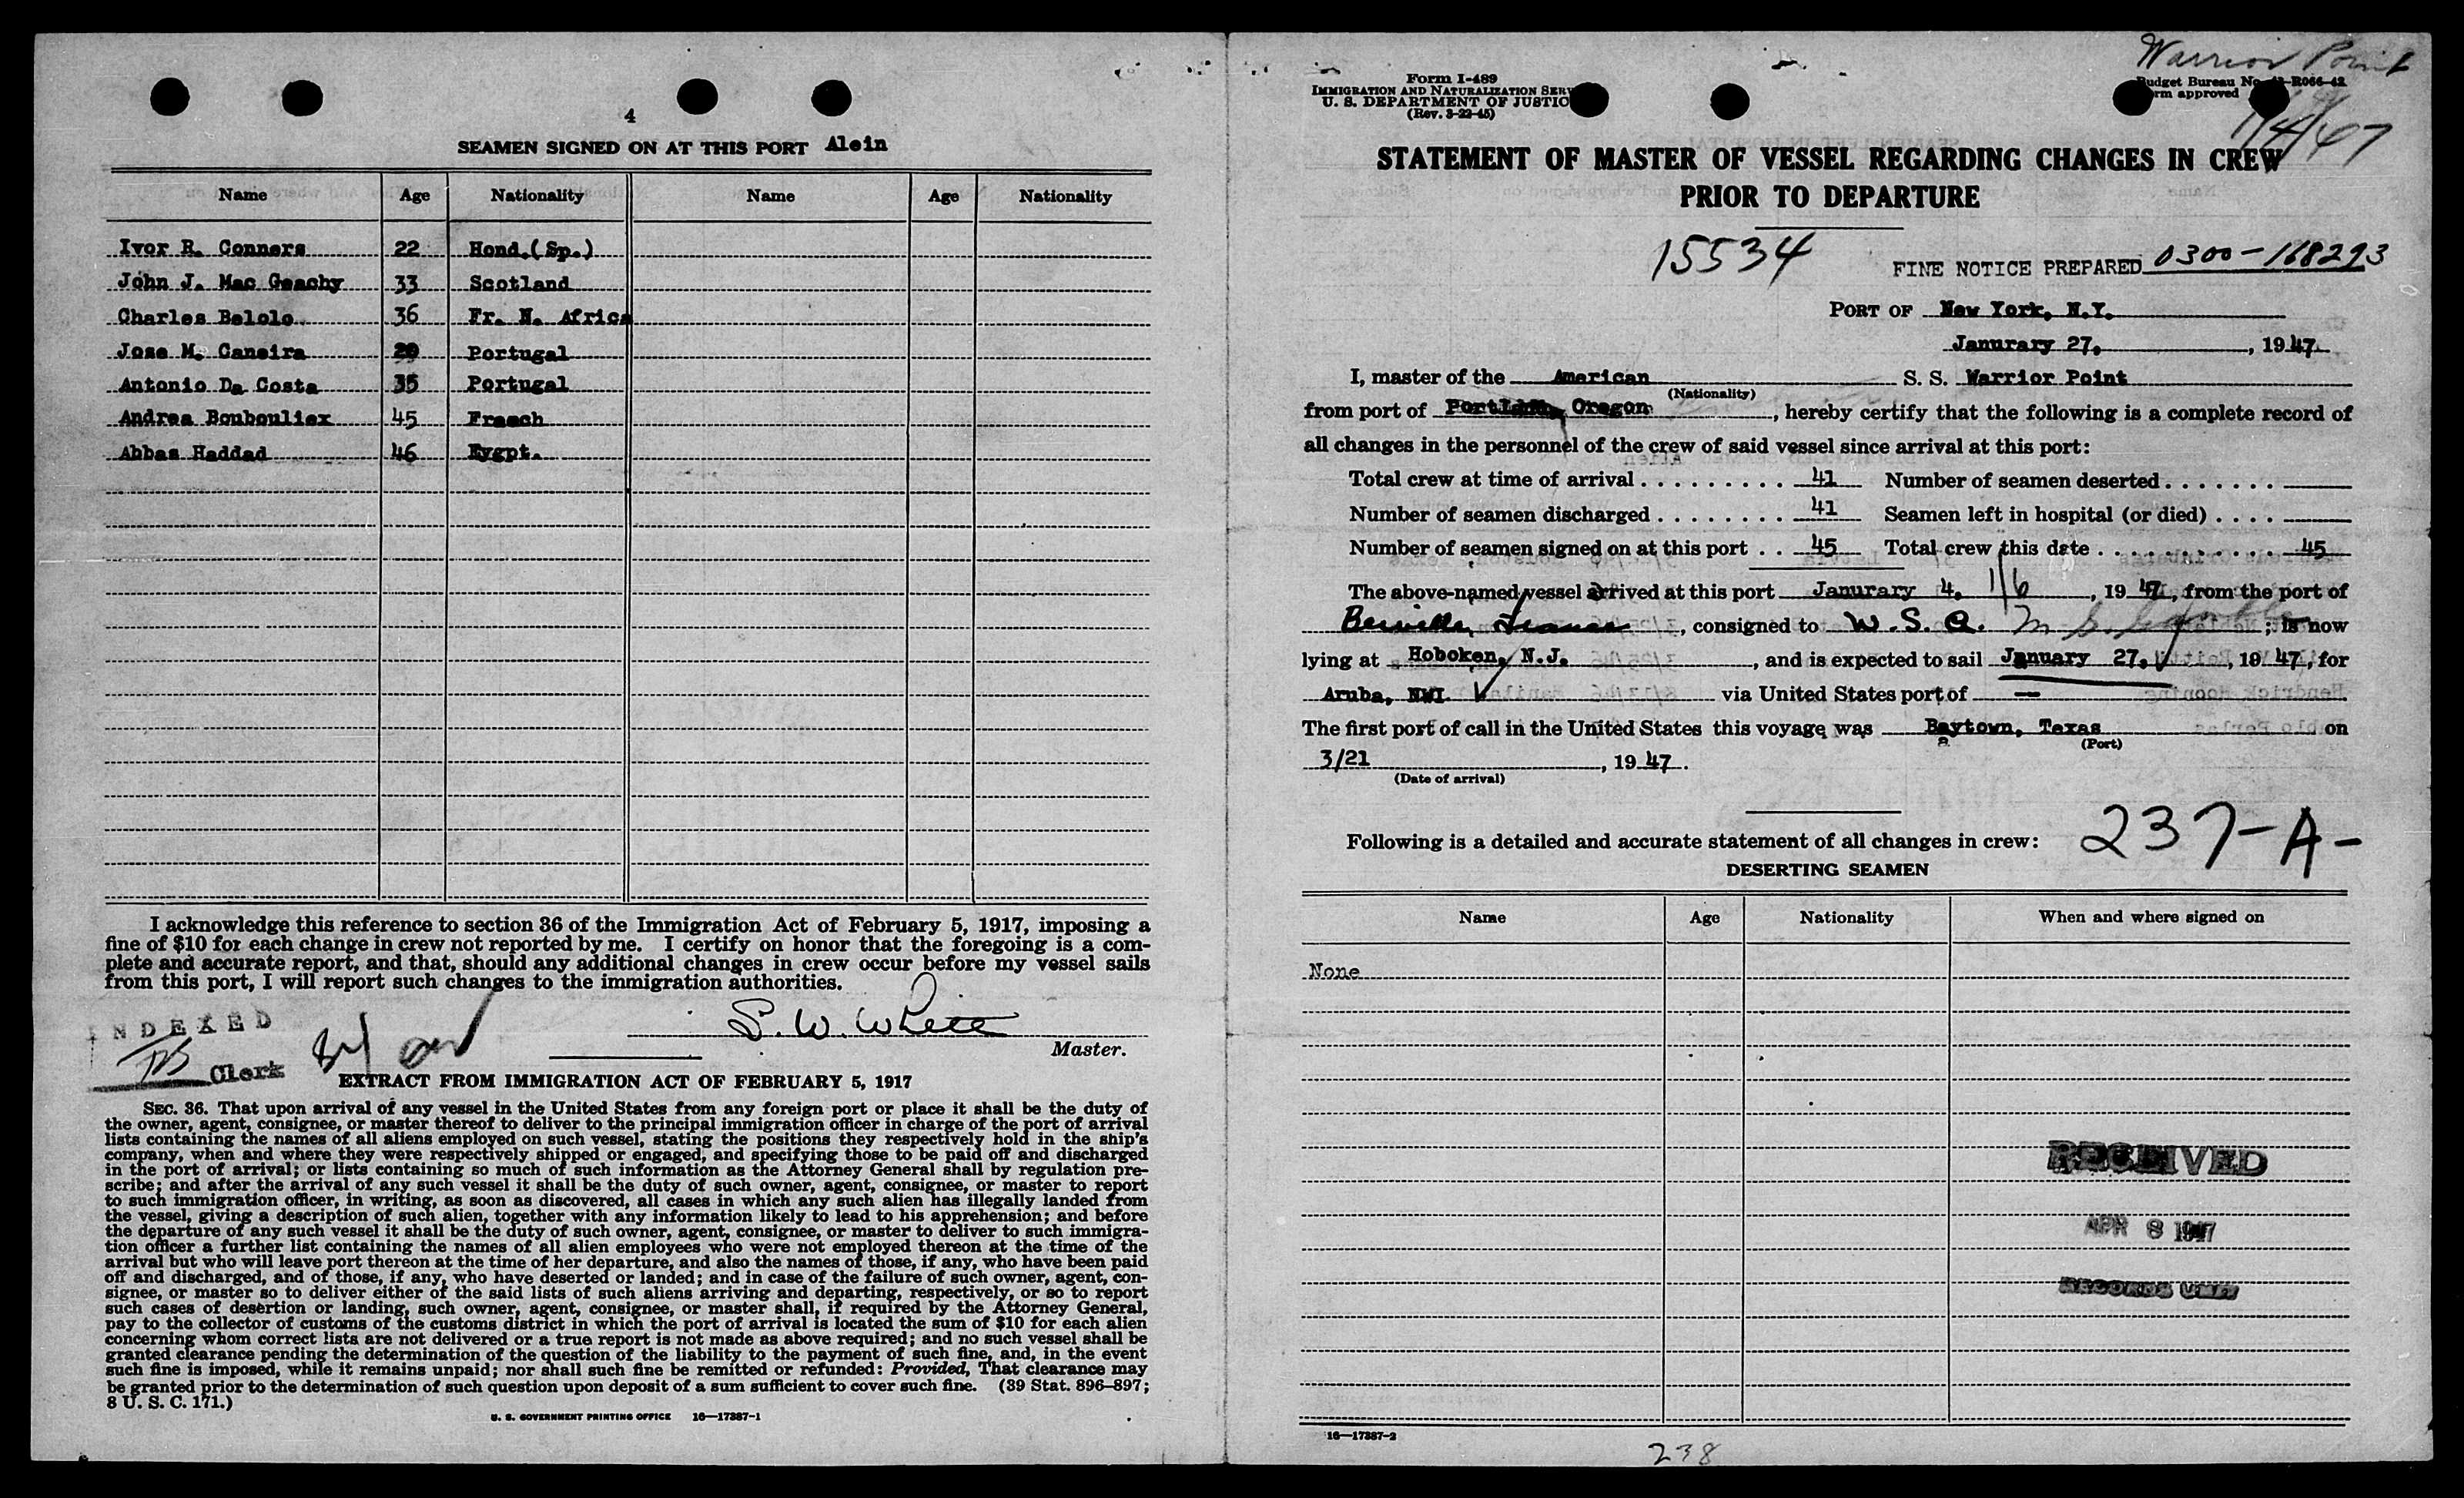 4
SEAMEN SIGNED ON AT THIS PORT Alein
Name Age Nationality Name Age Nationality
Ivor R. Connors 22 Hond.(Sp.)
John J. Mac Geachy 33 Scotland
Charles Belolo 36 Fr. N. Africa
Jose M. Caneira 20 Portugal
Antonio Da Costa 35 Portugal
Andrea Boubouliex 45 French
Abbas Haddad 46 Eygpt.
I acknowledge this reference to section 36 of the Immigration Act of February 5, 1917, imposing a
fine of $10 for each change in crew not reported by me. I certify on honor that the foregoing is a com-
plete and accurate report, and that, should any additional changes in crew occur before my vessel sails
from this port, I will report such changes to the immigration authorities.
S. W. White
Master.
INDEXED
Clerk
EXTRACT FROM IMMIGRATION ACT OF FEBRUARY 5, 1917
SEC. 36. That upon arrival of any vessel in the United States from any foreign port or place it shall be the duty of
the owner, agent, consignee, or master thereof to deliver to the principal immigration officer in charge of the port of arrival
lists containing the names of all aliens employed on such vessel, stating the positions they respectively hold in the ship's
company, when and where they were respectively shipped or engaged, and specifying those to be paid off and discharged
in the port of arrival; or lists containing so much of such information as the Attorney General shall by regulation pre-
scribe; and after the arrival of any such vessel it shall be the duty of such owner, agent, consignee, or master to report
to such immigration officer, in writing, as soon as discovered, all cases in which any such alien has illegally landed from
the vessel, giving a description of such alien, together with any information likely to lead to his apprehension; and before
the departure of any such vessel it shall be the duty of such owner, agent, consignee, or master to deliver to such immigra-
tion officer a further list containing the names of all alien employees who were not employed thereon at the time of the
arrival but who will leave port thereon at the time of her departure, and also the names of those, if any, who have been paid
off and discharged, and of those, if any, who have deserted or landed; and in case of the failure of such owner, agent, con-
signee, or master so to deliver either of the said lists of such aliens arriving and departing, respectively, or so to report
such cases of desertion or landing, such owner, agent, consignee, or master shall, if required by the Attorney General,
pay to the collector of customs of the customs district in which the port of arrival is located the sum of $10 for each alien
concerning whom correct lists are not delivered or a true report is not made as above required; and no such vessel shall be
granted clearance pending the determination of the question of the liability to the payment of such fine, and, in the event
such fine is imposed, while it remains unpaid; nor shall such fine be remitted or refunded: Provided, That clearance may
be granted prior to the determination of such question upon deposit of a sum sufficient to cover such fine. (39 Stat. 896–897;
8 U. S. C. 171.)
U. S. GOVERNMENT PRINTING OFFICE 16—17387-1
Warrior Point
1/4/47
Form I-489
IMMIGRATION AND NATURALIZATION SERV
U. S. DEPARTMENT OF JUSTIC
(Rev. 3-22-45)
Budget Bureau No. R066-42
rm approved
STATEMENT OF MASTER OF VESSEL REGARDING CHANGES IN CREW
PRIOR TO DEPARTURE
15534 FINE NOTICE PREPARED 0300-168293
PORT OF New York, N.Y.
Janurary 27, , 1947
I, master of the American S. S. Warrior Point
(Nationality)
from port of Portland, Oregon , hereby certify that the following is a complete record of
all changes in the personnel of the crew of said vessel since arrival at this port:
Total crew at time of arrival 41 Number of seamen deserted
Number of seamen discharged 41 Seamen left in hospital (or died)
Number of seamen signed on at this port 45 Total crew this date 45
The above-named vessel arrived at this port Janurary 4, 1/6 , 1947, from the port of
France , consigned to W. S. A. ; is now
lying at Hoboken, N.J. , and is expected to sail January 27, , 1947, for
Aruba, NWI via United States port of —
The first port of call in the United States this voyage was Baytown, Texas on
(Port)
3/21 , 1947.
(Date of arrival)
Following is a detailed and accurate statement of all changes in crew: 237-A-
DESERTING SEAMEN
Name Age Nationality When and where signed on
None
RECEIVED
APR 8 1947
RECORDS UNIT
16—17387-2
238